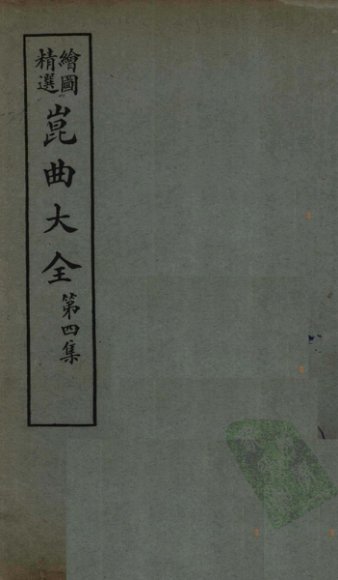 繪圖
精選
崑曲大全
第四集